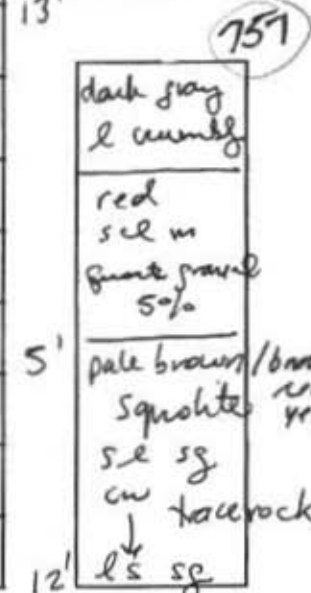 13'
757
dark gray
l crumbly
red
scl m
quartz gravel
5%
5' pale brown/brn
saprolite
sl sg
cw trace rock
↓
12' ls sg